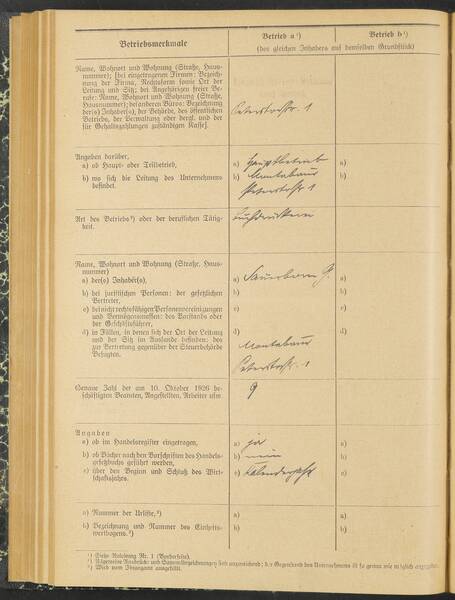 Betriebsmerkmale
Betrieb a ¹)
Betrieb b ¹)
(des gleichen Inhabers auf demselben Grundstück)
Name, Wohnort und Wohnung (Straße, Haus-
nummer); [bei eingetragenen Firmen: Bezeich-
nung der Firma, Rechtsform sowie Ort der
Leitung und Sitz; bei Angehörigen freier Be-
rufe: Name, Wohnort und Wohnung (Straße,
Hausnummer) besonderen Büros: Bezeichnung
der(s) Inhaber(s), der Behörde, des öffentlichen
Betriebs, der Verwaltung oder dergl. und der
für Gehaltszahlungen zuständigen Kasse].
Peterstorstr. 1
Angaben darüber,
a) ob Haupt- oder Teilbetrieb,
a) Hauptbetrieb
a)
b) wo sich die Leitung des Unternehmens
befindet.
b) Montabaur
Peterstorstr. 1
b)
Art des Betriebs ²) oder der beruflichen Tätig-
keit.
Buchdruckerei
Name, Wohnort und Wohnung (Straße, Haus-
nummer)
a) der(s) Inhaber(s),
a) Sauerborn
a)
b) bei juristischen Personen: der gesetzlichen
Vertreter,
b)
b)
c) bei nicht rechtsfähigen Personenvereinigungen
und Vermögensmassen: des Vorstands oder
der Geschäftsführer,
c)
c)
d) in Fällen, in denen sich der Ort der Leitung
und der Sitz im Auslande befinden: des
zur Vertretung gegenüber der Steuerbehörde
Befugten.
d)
Montabaur
Peterstorstr. 1
d)
Genaue Zahl der am 10. Oktober 1926 be-
schäftigten Beamten, Angestellten, Arbeiter usw.
9
Angaben
a) ob im Handelsregister eingetragen,
a) ja
a)
b) ob Bücher nach den Vorschriften des Handels-
gesetzbuchs geführt werden,
b) nein
b)
c) über den Beginn und Schluß des Wirt-
schaftsjahrs.
c) Kalenderjahr
c)
a) Nummer der Urliste, ³)
a)
a)
b) Bezeichnung und Nummer des Einheits-
wertbogens. ³)
b)
b)
¹) Siehe Anleitung Nr. 1 (Vorderseite).
²) Allgemeine Ausdrücke und Sammelbezeichnungen sind unzureichend; der Gegenstand des Unternehmens ist so genau wie möglich anzugeben.
³) Wird vom Finanzamt ausgefüllt.